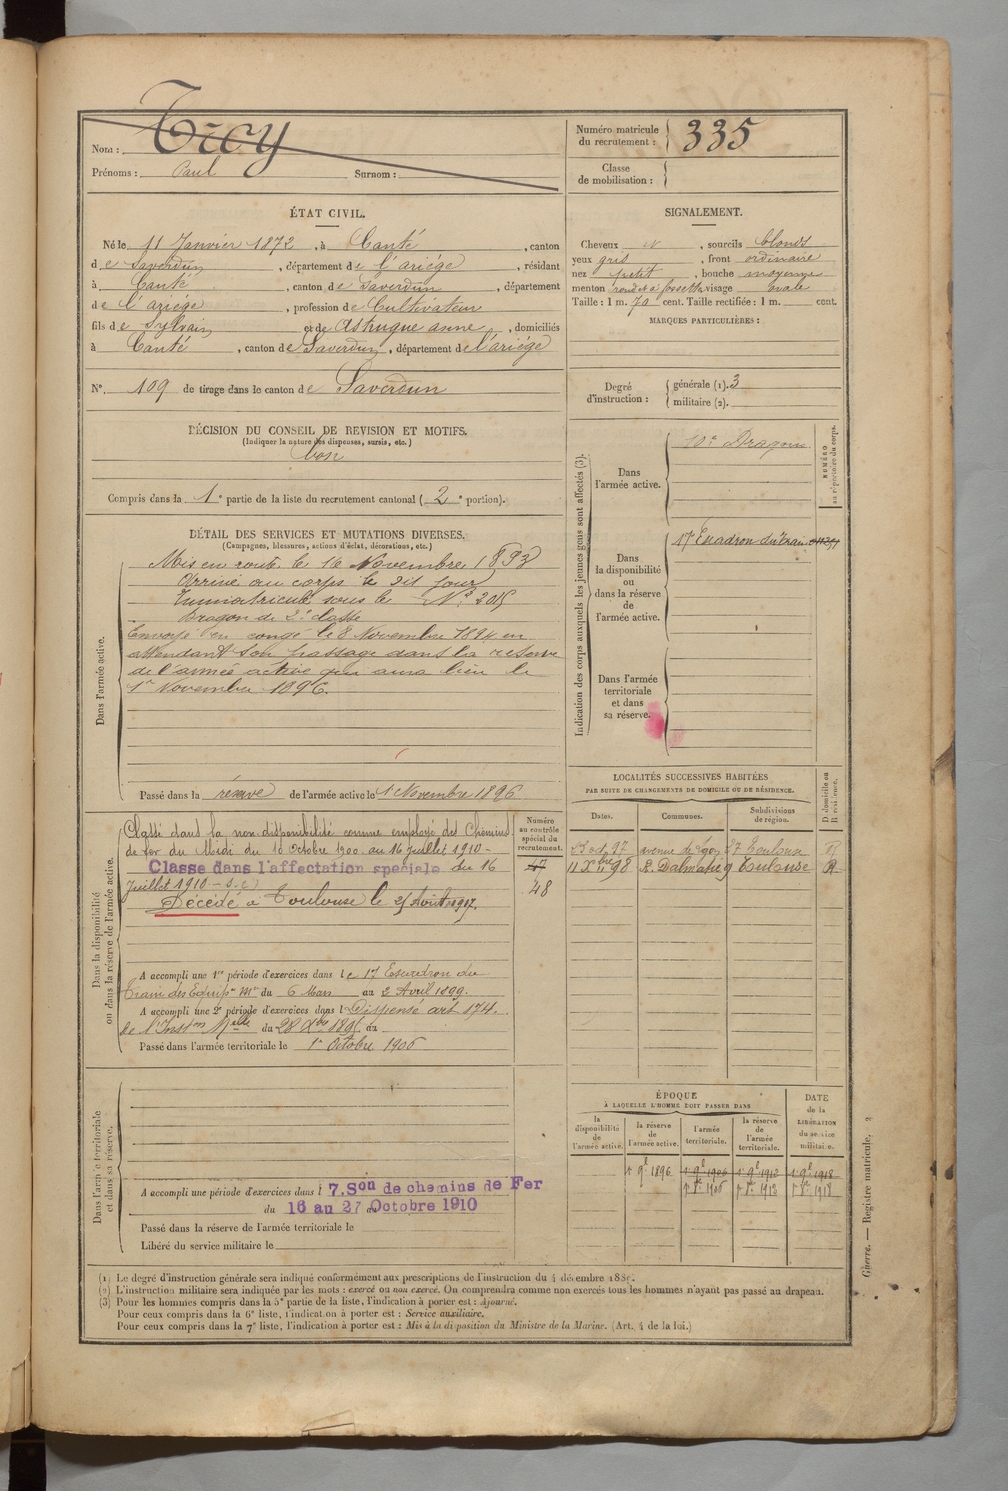 Nom : Troy
Prénoms : Paul Surnom :
Numéro matricule du recrutement : 335
Classe de mobilisation :
ÉTAT CIVIL.
Né le 11 Janvier 1872, à Canté, canton
de Saverdun, département de l'ariége, résidant
à Canté, canton de Saverdun, département
de l'ariége, profession de Cultivateur
fils de Sylvain et de Astrugue anne, domiciliés
à Canté, canton de Saverdun, département de l'ariége
N° 109 de tirage dans le canton de Saverdun
DÉCISION DU CONSEIL DE REVISION ET MOTIFS.
(Indiquer la nature des dispenses, sursis, etc.)
bon
Compris dans la 1e partie de la liste du recrutement cantonal (2e portion).
SIGNALEMENT.
Cheveux , sourcils blonds
yeux gris, front ordinaire
nez petit, bouche moyenne
menton rond et à fossette visage ovale
Taille : 1 m. 70 cent. Taille rectifiée : 1 m. cent.
MARQUES PARTICULIÈRES :
Degré d'instruction : générale (1). 3
militaire (2).
DÉTAIL DES SERVICES ET MUTATIONS DIVERSES.
(Campagnes, blessures, actions d'éclat, décorations, etc.)
Dans l'armée active.
Mis en route le 16 Novembre 1893
Arrivé au corps le dit jour
Immatriculé sous le N° 2015
Dragon de 2e classe
Envoyé en congé le 8 Novembre 1894 en
attendant son passage dans la réserve
de l'armée active qui aura lieu le
1er Novembre 1896.
Passé dans la réserve de l'armée active le 1 Novembre 1896
Indication des corps auxquels les jeunes gens sont affectés (3).
NUMÉRO au répertoire du corps.
Dans l'armée active.
10e Dragons
Dans la disponibilité ou dans la réserve de l'armée active.
17e Escadron du Train
Dans l'armée territoriale et dans sa réserve.
Dans la disponibilité ou dans la réserve de l'armée active.
Numéro au contrôle spécial du recrutement.
47
48
Classé dans la non disponibilité comme employé des Chemins
de fer du Midi du 10 Octobre 1900 au 16 Juillet 1910 -
Classé dans l'affectation spéciale du 16
Juillet 1910 -
Décédé à Toulouse le 25 Août 1917.
A accompli une 1re période d'exercices dans le 17 Escadron du
Train des Equip. Mres du 6 Mars au 2 Avril 1899.
A accompli une 2e période d'exercices dans l Dispensé art 174.
de l'Inston Melle du 28 Xbre au
Passé dans l'armée territoriale le 1er Octobre 1906
LOCALITÉS SUCCESSIVES HABITÉES
PAR SUITE DE CHANGEMENTS DE DOMICILE OU DE RÉSIDENCE.
Dates. Communes. Subdivisions de région. D domicile ou R résidence.
97 avenue de 27 Toulouse R
11 Xbre 98 R. Dalmatie 9 Toulouse R
Dans l'armée territoriale et dans sa réserve.
A accompli une période d'exercices dans l 7. Son de chemins de Fer
du 16 au 27 Octobre 1910
Passé dans la réserve de l'armée territoriale le
Libéré du service militaire le
ÉPOQUE
À LAQUELLE L'HOMME DOIT PASSER DANS
la disponibilité de l'armée active. la réserve de l'armée active. l'armée territoriale. la réserve de l'armée territoriale.
DATE de la LIBÉRATION du service militaire.
1er 9bre 1896 1er 9bre 1906 1er 9bre 1912 1er 9bre 1918
1er 8bre 1906 1er 8bre 1912 1er 8bre 1918
(1) Le degré d'instruction générale sera indiqué conformément aux prescriptions de l'instruction du 4 décembre 1889.
(2) L'instruction militaire sera indiquée par les mots : exercé ou non exercé. On comprendra comme non exercés tous les hommes n'ayant pas passé au drapeau.
(3) Pour les hommes compris dans la 5e partie de la liste, l'indication à porter est : Ajourné.
Pour ceux compris dans la 6e liste, l'indication à porter est : Service auxiliaire.
Pour ceux compris dans la 7e liste, l'indication à porter est : Mis à la disposition du Ministre de la Marine. (Art. 4 de la loi.)
Guerre. — Registre matricule. 2